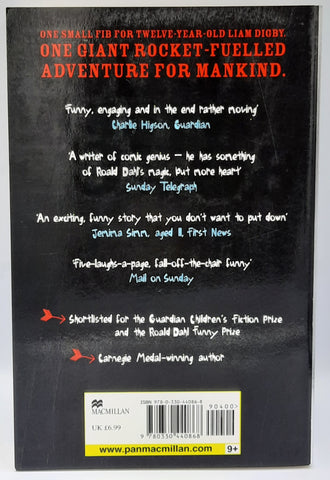 ONE SMALL FIB FOR TWELVE-YEAR-OLD LIAM DIGBY.
ONE GIANT ROCKET-FUELLED
ADVENTURE FOR MANKIND.
'Funny, engaging and in the end rather moving'
Charlie Higson, Guardian
'A writer of comic genius – he has something
of Roald Dahl's magic, but more heart'
Sunday Telegraph
'An exciting, funny story that you don't want to put down'
Jemima Simm, aged 11, First News
'Five-laughs-a-page, fall-off-the-chair funny'
Mail on Sunday
Shortlisted for the Guardian Children's Fiction Prize
and the Roald Dahl Funny Prize
Carnegie Medal-winning author
ISBN 978-0-330-44086-8
90400
MACMILLAN
UK £6.99
9 780330 440868
www.panmacmillan.com
9+